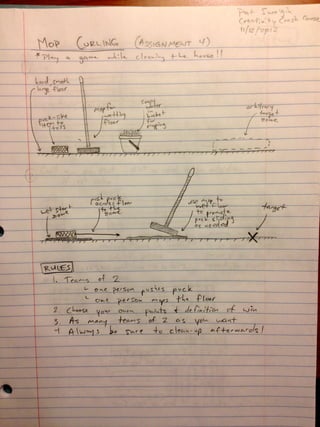 Creativity Crash Course
MOP CURLING (ASSIGNMENT 4)
* Play a game while cleaning the house!!
hard, smooth
large floor
mop for
wetting
floor
soapy
water
in
bucket
for
mopping
arbitrary
target
zone
wet start
zone
push puck
across floor
to the
zone
use mop to
wet floor
to promote
puck sliding
as needed
target
RULES
1. Teams of 2
↳ one person pushes puck
↳ one person mops the floor
2 Choose your own points & definition of win
3. As many teams of 2 as you want
4 Always be sure to clean-up afterwards!